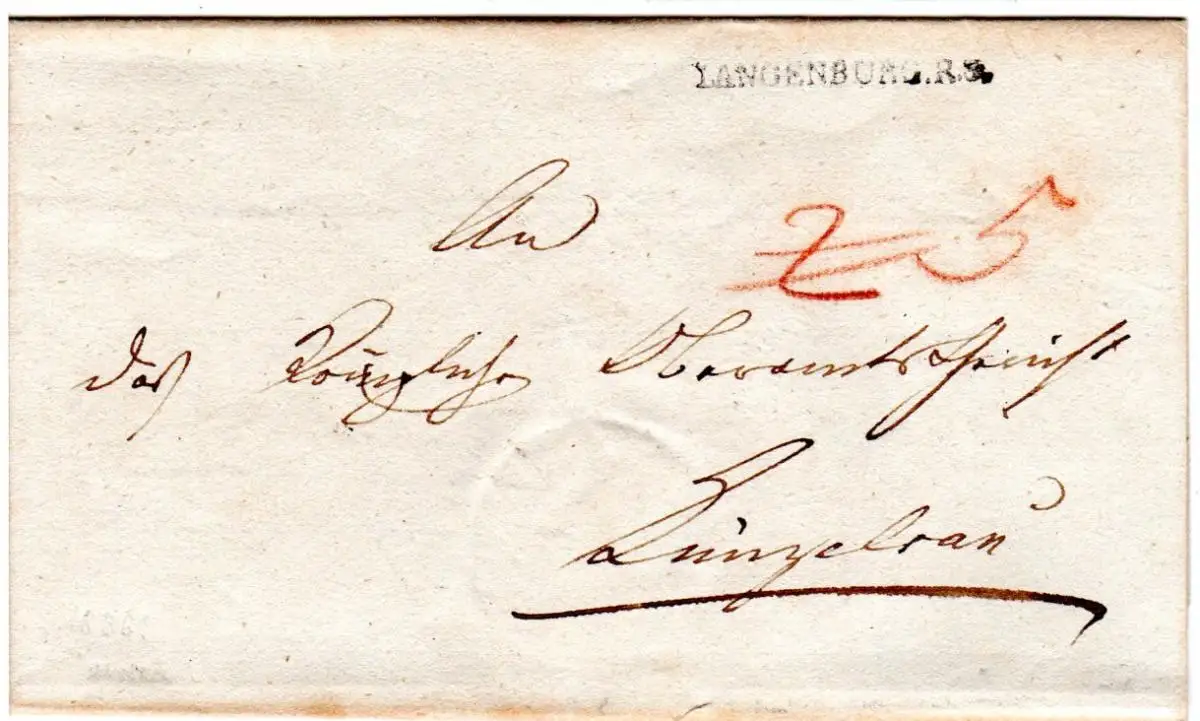 LANGENBURG.R.3.
An
2 5
das Königliche Oberamtsgericht
Künzelsau